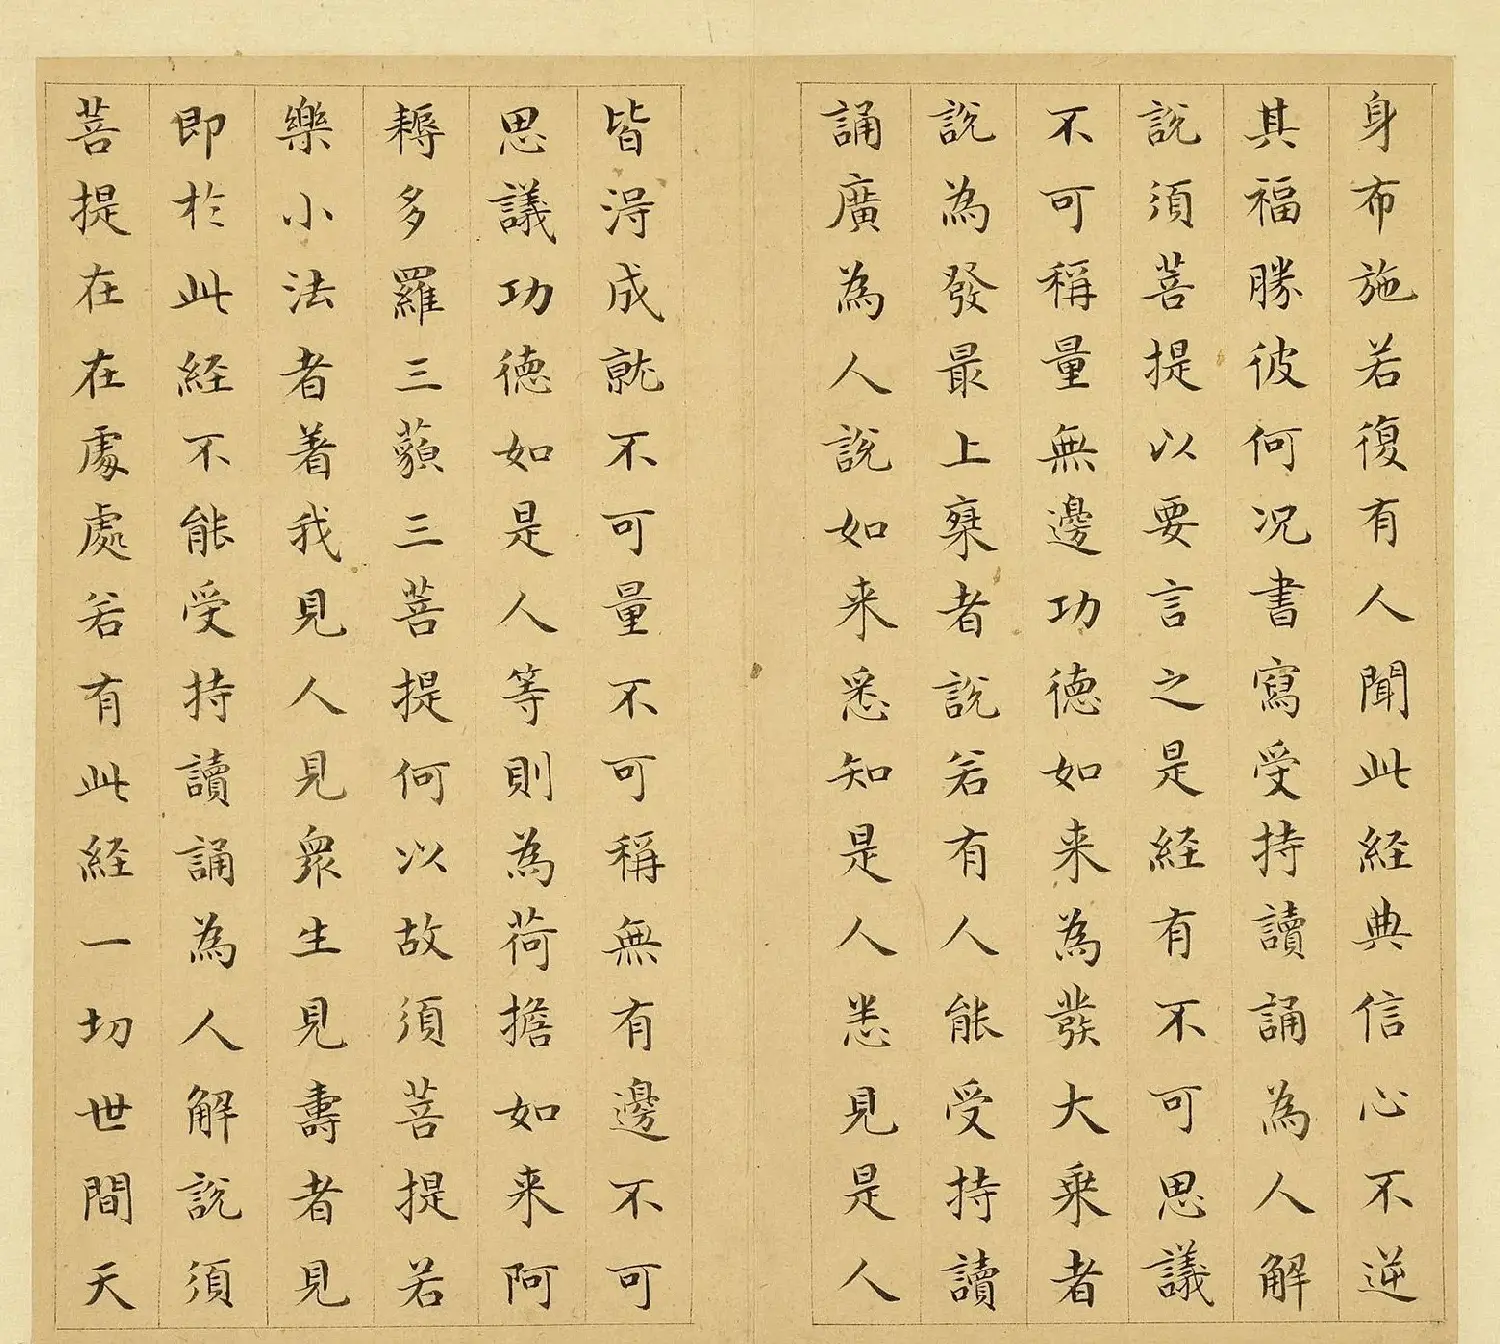 身布施若復有人聞此経典信心不逆
其福勝彼何况書寫受持讀誦為人解
說須菩提以要言之是経有不可思議
不可稱量無邊功徳如来為發大乗者
說為發最上乗者說若有人能受持讀
誦廣為人說如来悉知是人悉見是人
皆淂成就不可量不可稱無有邊不可
思議功徳如是人等則為荷擔如来阿
耨多羅三藐三菩提何以故須菩提若
樂小法者着我見人見衆生見壽者見
即於此経不能受持讀誦為人解說須
菩提在在處處若有此経一切世間天